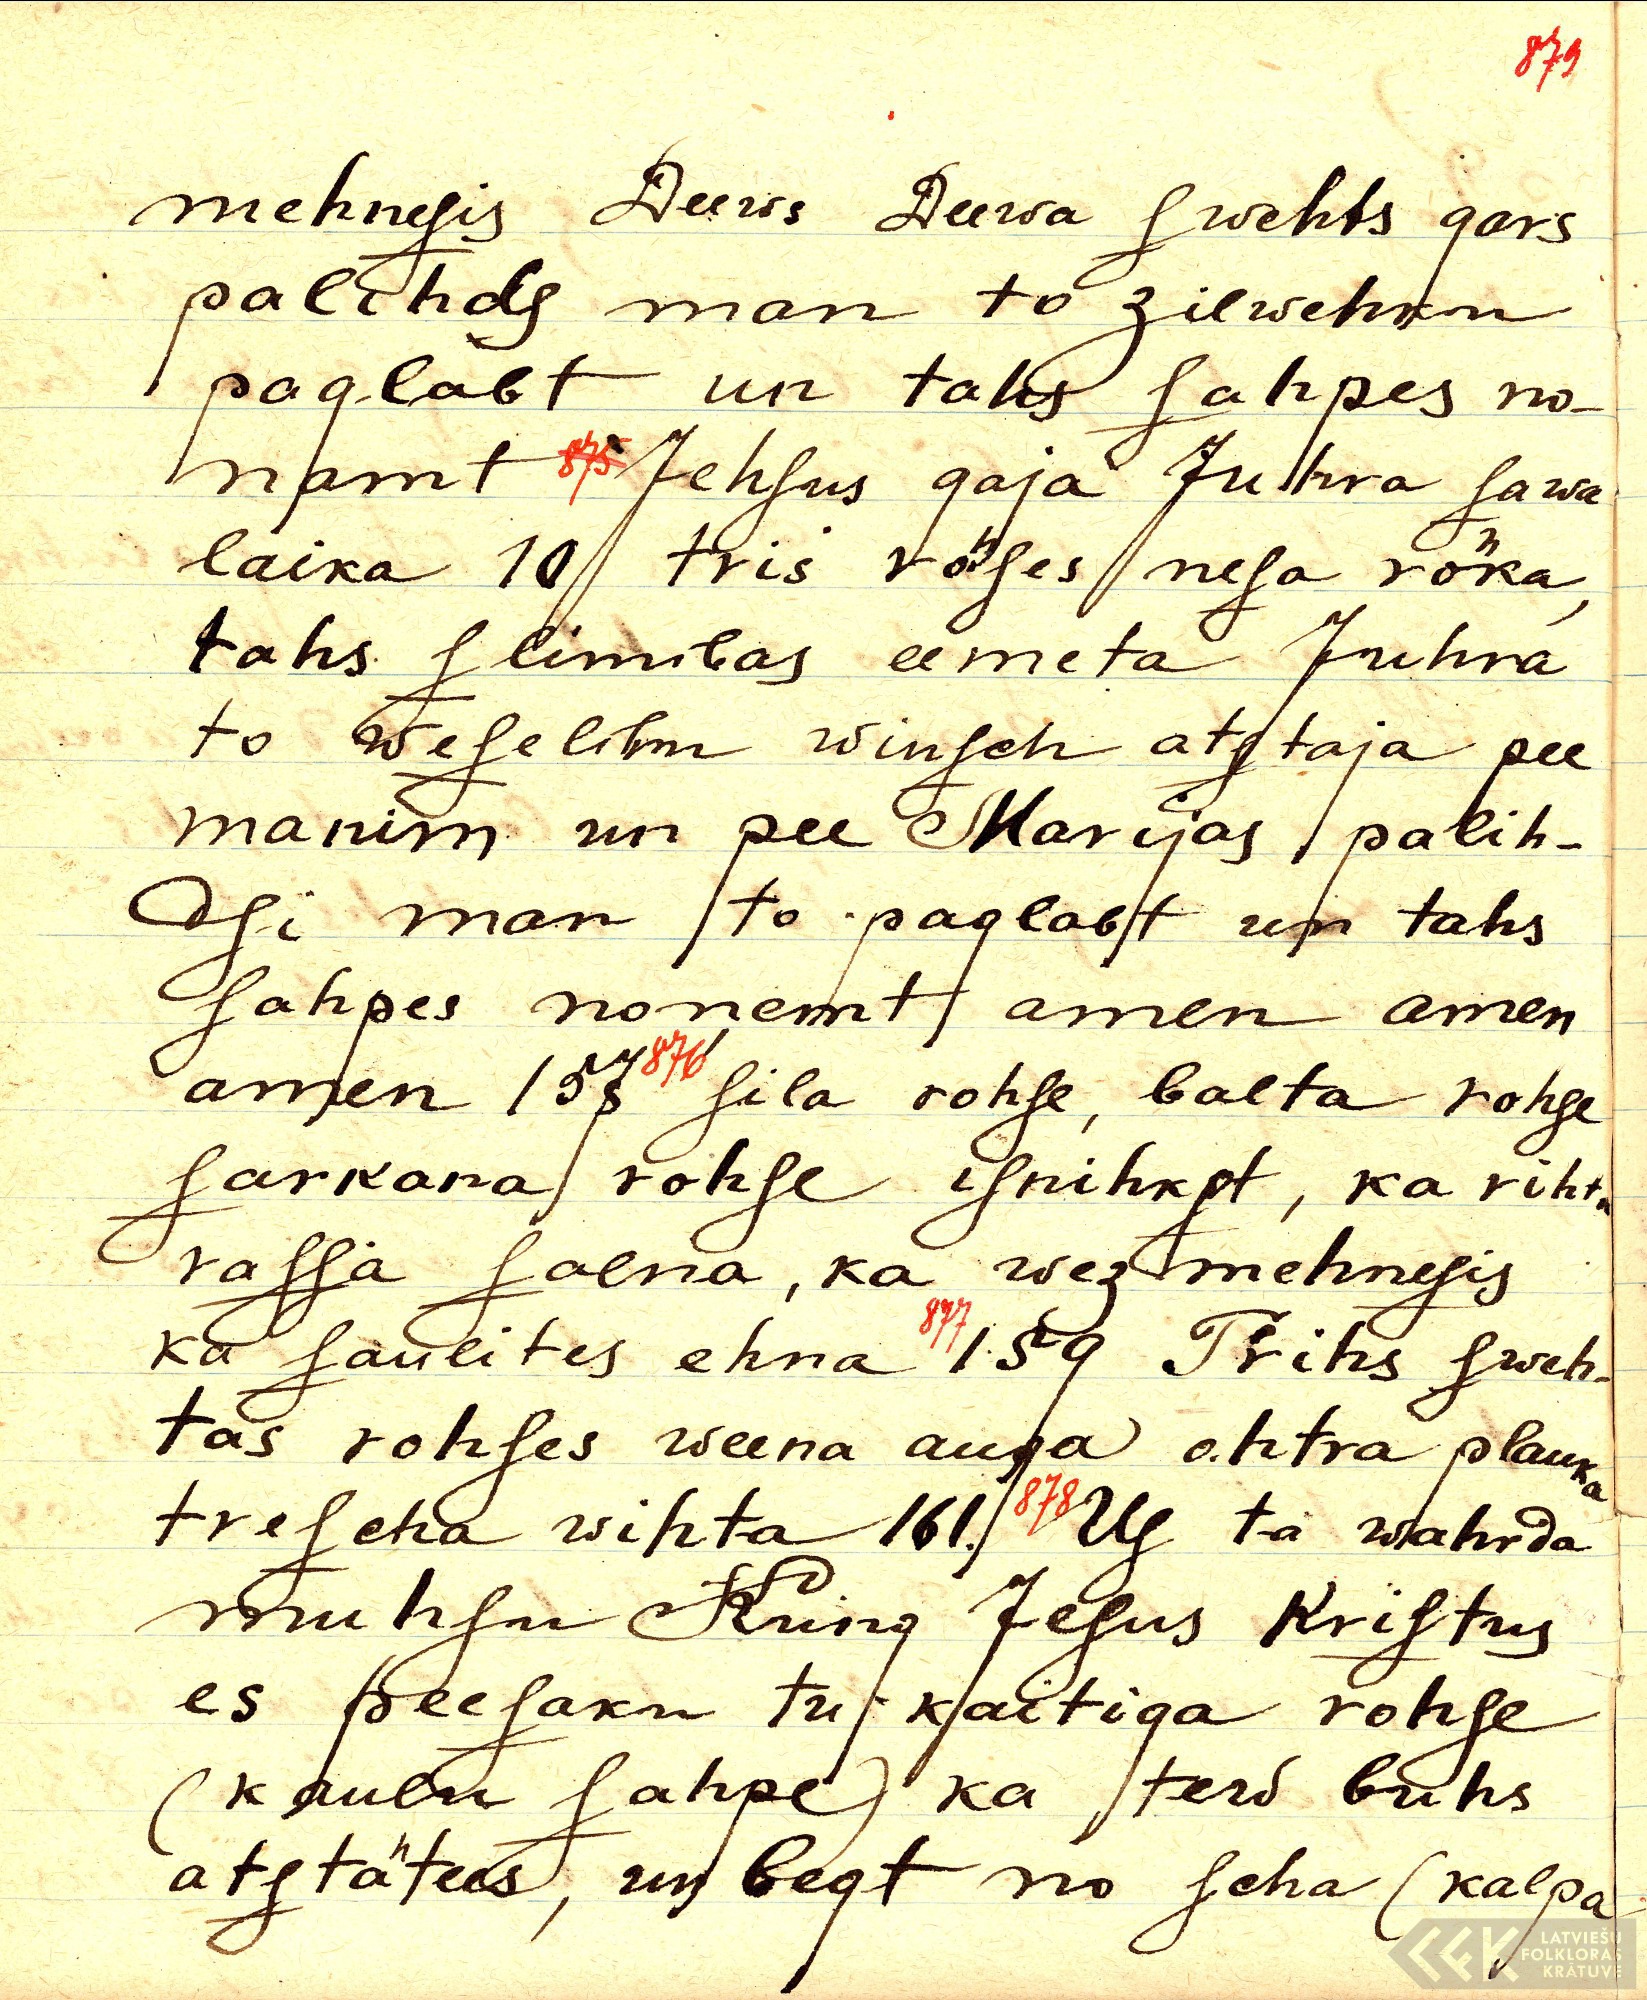 879
mehneſis Deews Deewa ſwehts gars
palihdſ man to zilwehku
paglabt un tahs ſahpes no-
namt 875 Jehſus gaja Juhra ſawa
laika 10 tris rohſes neſa rohka,
tahs ſlimibas eemeta Juhra
to weſelibu winſch atſtaja pee
manim un pee Marijas palih-
dſi man to paglabt un tahs
ſahpes nonemt amen amen
amen 157 876 ſila rohſe, balta rohſe
ſarkana rohſe iſnihkſt, ka rihta
raſſa ſalna, ka wez mehneſis
ka ſaulites ehna 877 159 Trihs ſweh-
tas rohſes weena auga ohtra plauka
treſcha wihta 161. 878 Uſ ta wahrda
muhſu Kung Jeſus Kriſtus
es peeſaku tu kaitiga rohſe
(kaulu ſahpe) ka tew buhs
atſtahtees, un begt no ſcha (kalpa
LATVIEŠU
FOLKLORAS
KRĀTUVE